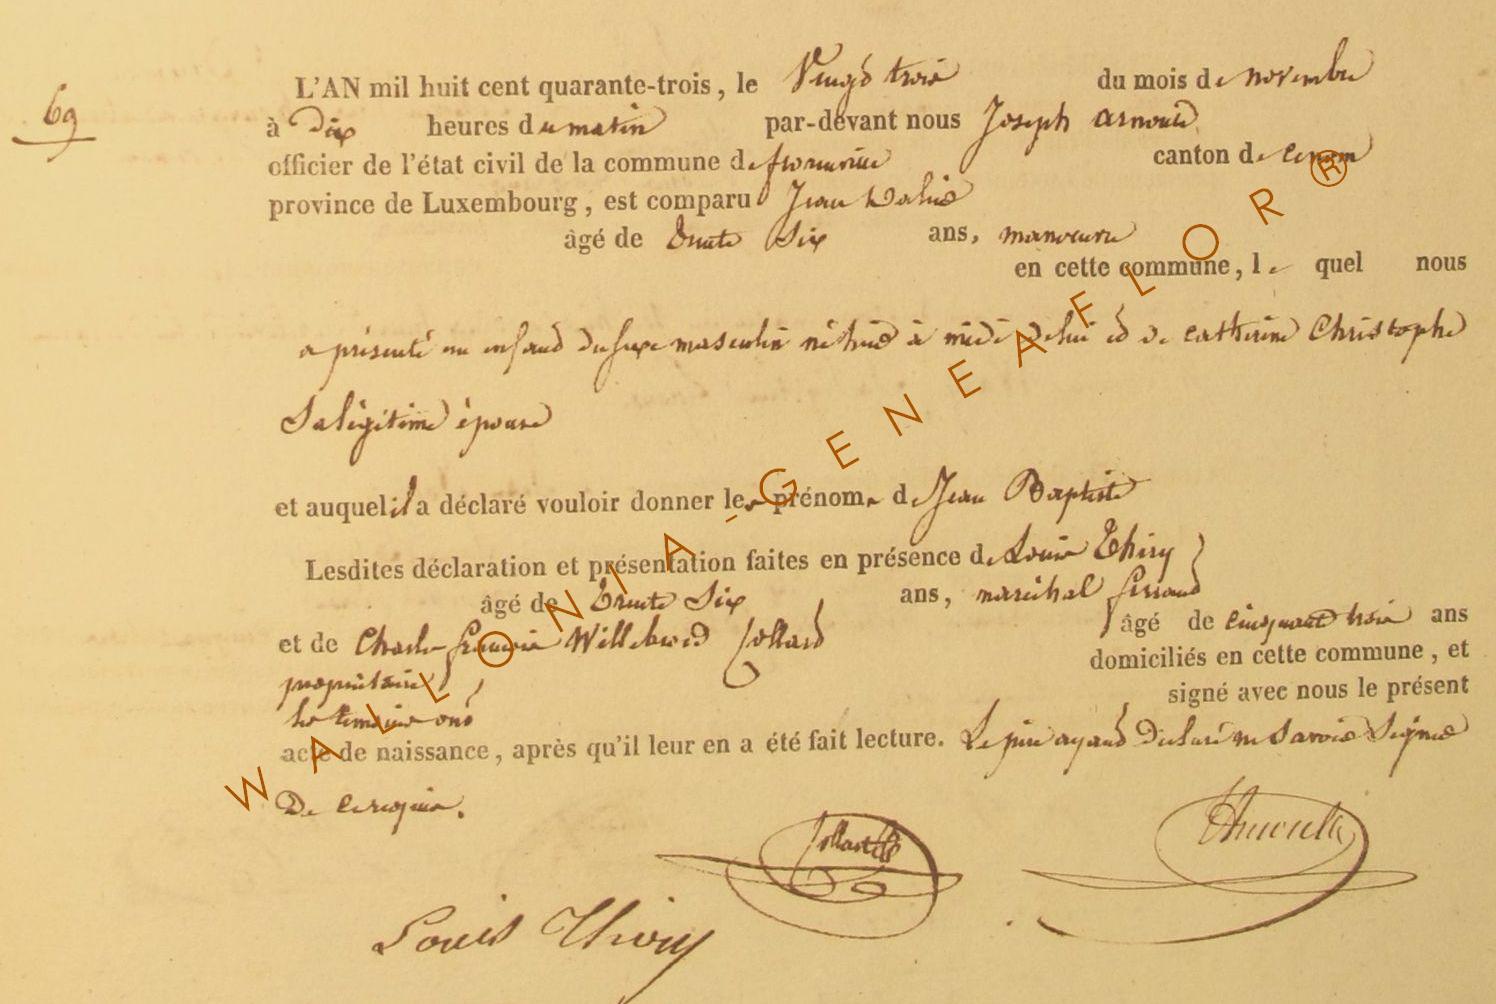 69
L'AN mil huit cent quarante-trois, le Vingt trois du mois de novembre
à Dix heures du matin par-devant nous Joseph arnould
officier de l'état civil de la commune de florenville canton de
province de Luxembourg, est comparu Jean
âgé de trente Six ans, manoeuvre
en cette commune, le quel nous
a présenté un enfand du sexe masculin né hier à midi de lui et de catherine Christophe
Sa légitime épouse
et auquel il a déclaré vouloir donner les prénoms de Jean Baptiste
Lesdites déclaration et présentation faites en présence de Louis Thiry
âgé de trente Six ans, maréchal ferrand
et de Charles françois Willebrord Collard âgé de cinquante trois ans
propriétaire domiciliés en cette commune, et
les témoins ont signé avec nous le présent
acte de naissance, après qu'il leur en a été fait lecture. Le père ayand Déclaré ne Savoir Signer
De ce requis.
Collard
Arnould
Louis Thiry
WALLONIA-GENEAFLOR®